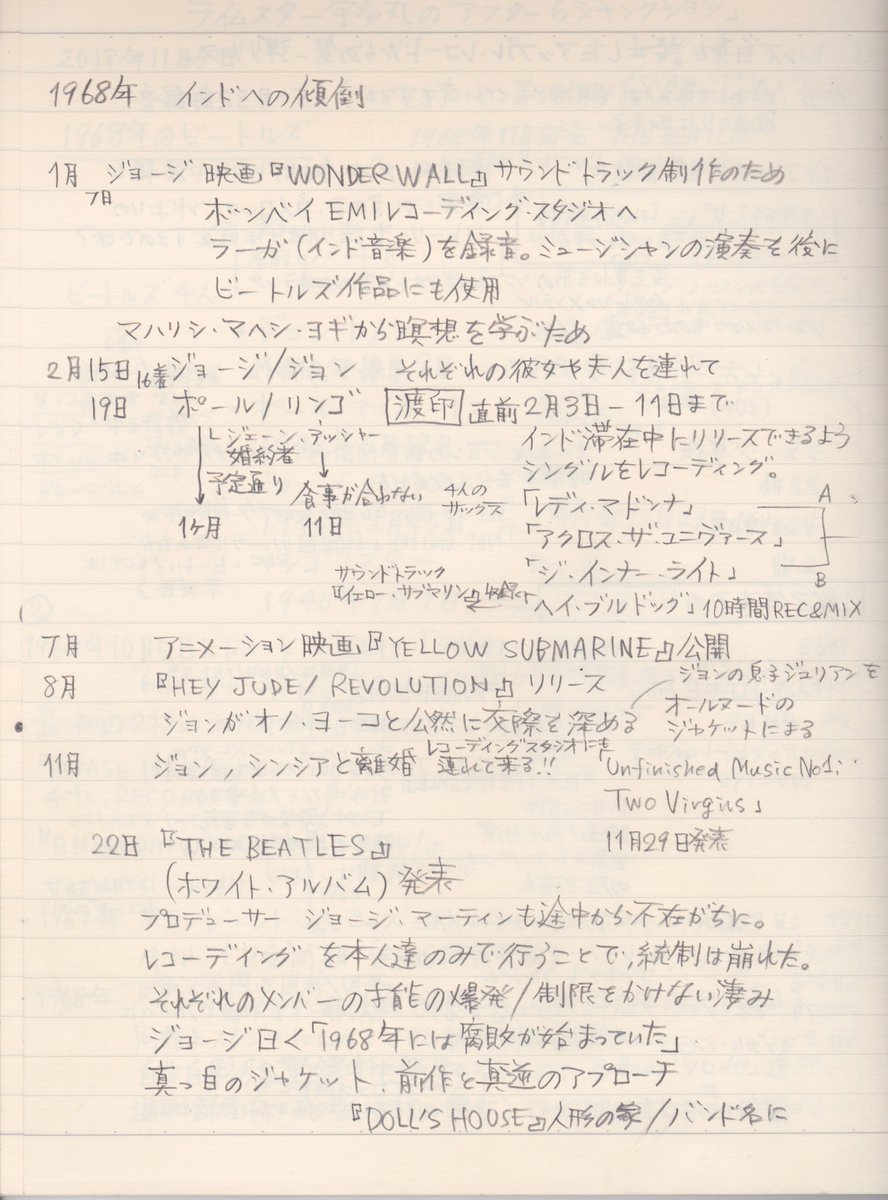 1968年 インドへの傾倒
1月 ジョージ 映画『WONDERWALL』サウンドトラック制作のため
7日 ボンベイEMIレコーディング・スタジオへ
ラーガ(インド音楽)を録音。ミュージシャンの演奏も後に
ビートルズ作品にも使用
マハリシ・マヘシ・ヨギから瞑想を学ぶため
2月15日 16着 ジョージ/ジョン それぞれの彼女や夫人を連れて
19日 ポール/リンゴ 渡印 直前2月3日-11日まで
ジェーン・アッシャー インド滞在中にリリースできるよう
婚約者 シングルをレコーディング。
予定通り 食事が合わない 4人のサックス 「レディ・マドンナ」 A
1ヶ月 11日 「アクロス・ザ・ユニヴァース」
「ジ・インナー・ライト」 B
サウンドトラック
『イエロー・サブマリン』に収録 「ヘイ・ブルドッグ」10時間REC&MIX
7月 アニメーション映画『YELLOW SUBMARINE』公開
8月 『HEY JUDE/REVOLUTION』リリース ジョンの息子ジュリアンを
ジョンがオノ・ヨーコと公然に交際を深める オールヌードの
ジャケットによる
レコーディングスタジオにも
11月 ジョン、シンシアと離婚 連れて来る!! 「Unfinished Music No1:
Two Virgins」
22日 『THE BEATLES』 11月29日発表
(ホワイト・アルバム)発表
プロデューサー ジョージ・マーティンも途中から不在がちに。
レコーディングを本人達のみで行うことで、統制は崩れた。
それぞれのメンバーの才能の爆発/制限をかけない凄み
ジョージ曰く「1968年には腐敗が始まっていた」
真っ白のジャケット、前作と真逆のアプローチ
『DOLL'S HOUSE』人形の家/バンド名に